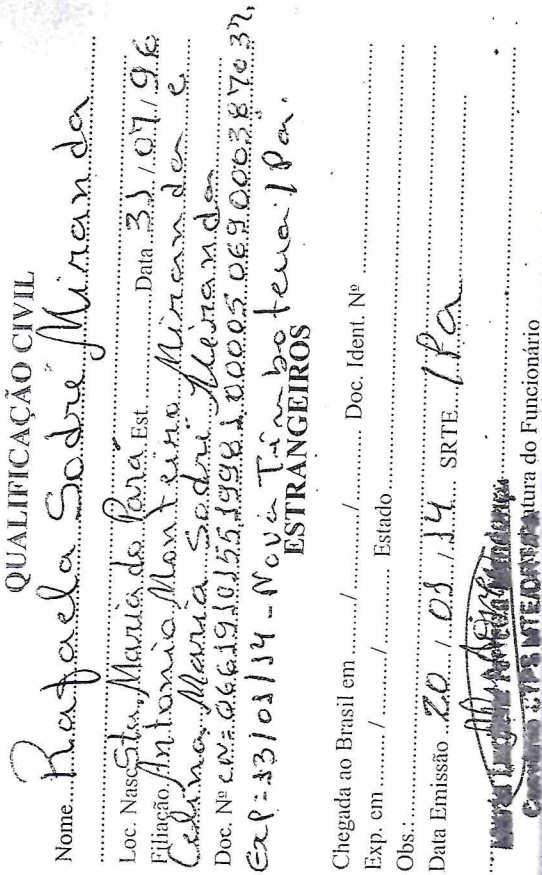 QUALIFICAÇÃO CIVIL
Nome Rafaela Sodré Miranda
Loc. Nasc Sta. Maria do Pará Est. Data 31/07/96
Filiação Antonio Monteiro Miranda e
Celina Maria Sodré Miranda
Doc. Nº CN=06619101551998100005069000387037,
Exp=13/01/14 - Nova Timboteua/Pa.
ESTRANGEIROS
Chegada ao Brasil em ........./........./......... Doc. Ident. Nº
Exp. em ......../......../........ Estado
Obs.:
Data Emissão 20/01/14 SRTE /Pa
Assinatura do Funcionário
CTPS MTE/DRT/PA